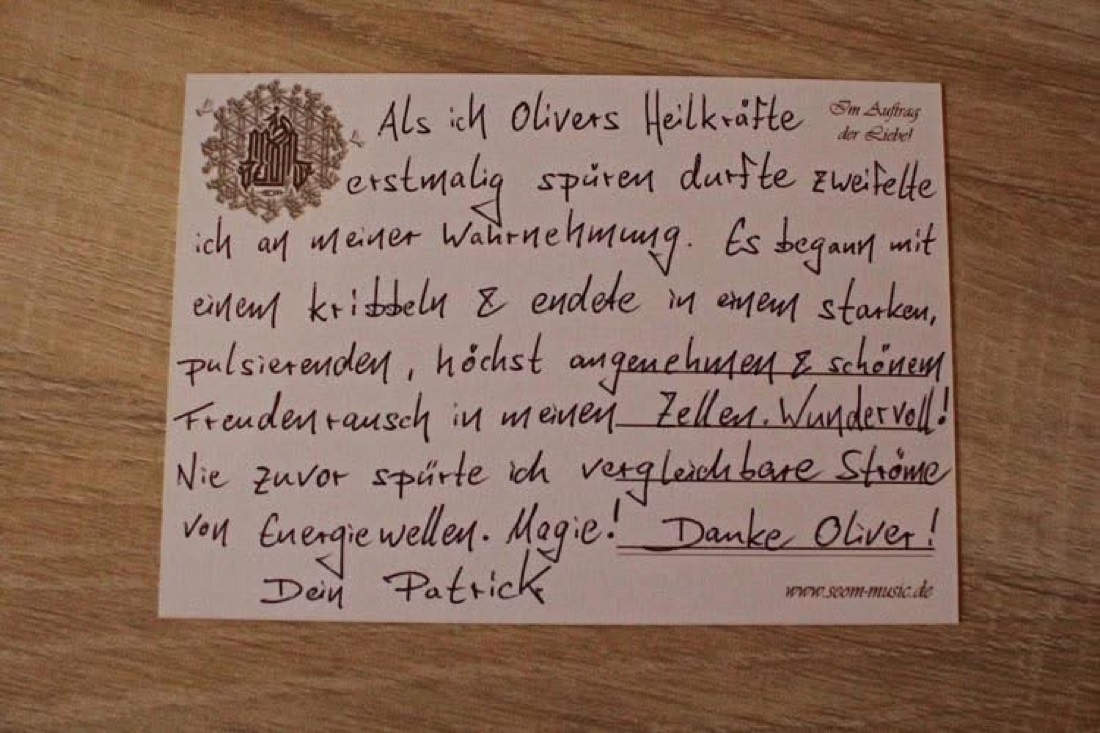 Als ich Olivers Heilkräfte
Im Auftrag
der Liebe!
erstmalig spüren durfte zweifelte
ich an meiner Wahrnehmung. Es begann mit
einem kribbeln & endete in einem starken,
pulsierenden, höchst angenehmen & schönem
Freudenrausch in meinen Zellen. Wundervoll!
Nie zuvor spürte ich vergleichbare Ströme
von Energiewellen. Magie! Danke Oliver!
Dein Patrick
www.seom-music.de